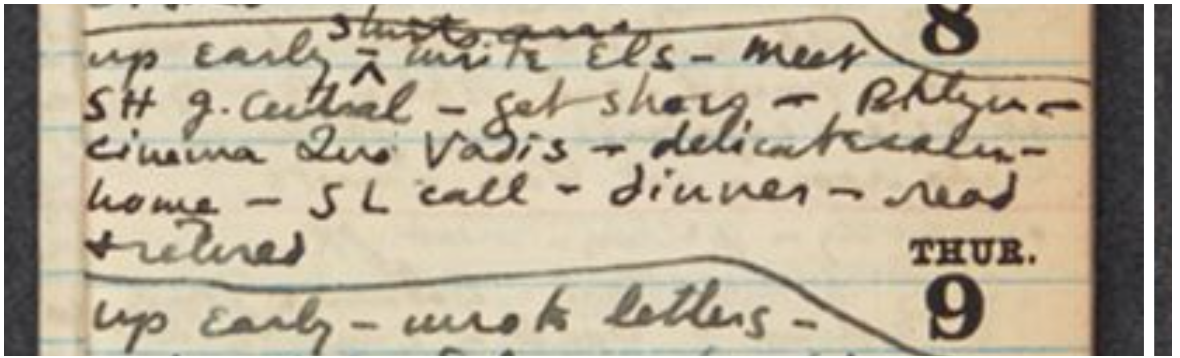 8
up early - write Els - meet
SH g. Central - get shoes -
cinema Quo Vadis - delicatessen -
home - SL call - dinner - read
+ retired
THUR.
9
up early - wrote letters -